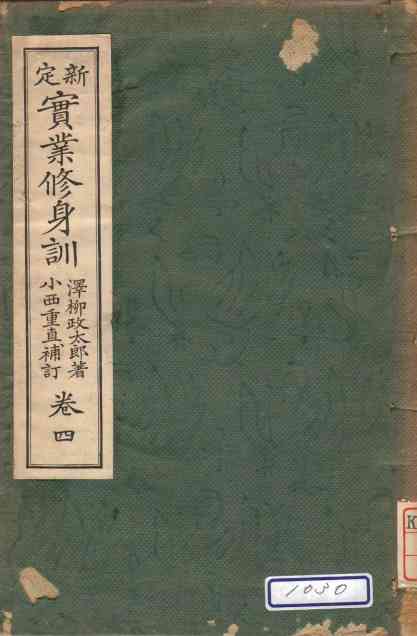 新定
實業修身訓
澤柳政太郎著
小西重直補訂
卷四
K
1030